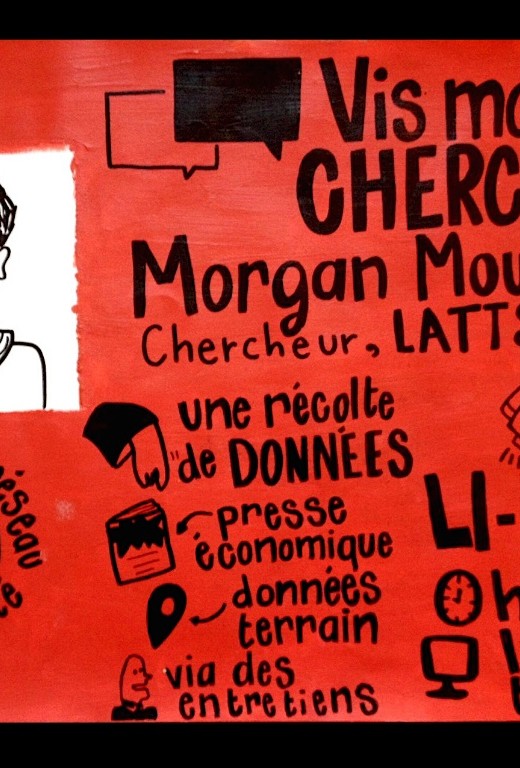 Vis
CHERC
Morgan Mou
Chercheur, LATTS
une récolte
de DONNÉES
presse
économique
données
terrain
via des
entretiens
réseau
LI-